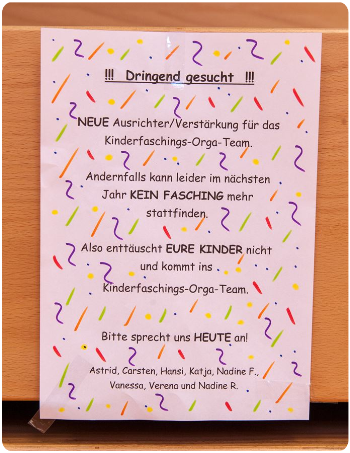 !!! Dringend gesucht !!!
NEUE Ausrichter/Verstärkung für das
Kinderfaschings-Orga-Team.
Andernfalls kann leider im nächsten
Jahr KEIN FASCHING mehr
stattfinden.
Also enttäuscht EURE KINDER nicht
und kommt ins
Kinderfaschings-Orga-Team.
Bitte sprecht uns HEUTE an!
Astrid, Carsten, Hansi, Katja, Nadine F.,
Vanessa, Verena und Nadine R.